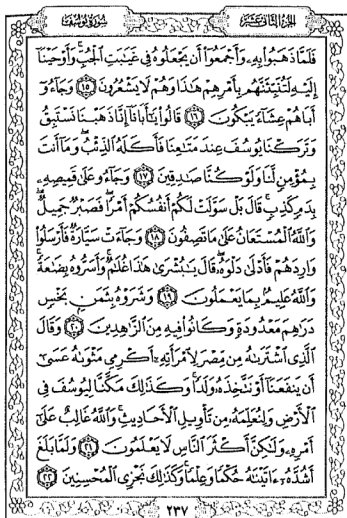 الجزء الثاني عشر
سورة يوسف
فَلَمَّا ذَهَبُوا۟ بِهِۦ وَأَجْمَعُوٓا۟ أَن يَجْعَلُوهُ فِى غَيَـٰبَتِ ٱلْجُبِّ وَأَوْحَيْنَآ
إِلَيْهِ لَتُنَبِّئَنَّهُم بِأَمْرِهِمْ هَـٰذَا وَهُمْ لَا يَشْعُرُونَ ١٥ وَجَآءُوٓ
أَبَاهُمْ عِشَآءً يَبْكُونَ ١٦ قَالُوا۟ يَـٰٓأَبَانَآ إِنَّا ذَهَبْنَا نَسْتَبِقُ
وَتَرَكْنَا يُوسُفَ عِندَ مَتَـٰعِنَا فَأَكَلَهُ ٱلذِّئْبُ وَمَآ أَنتَ
بِمُؤْمِنٍ لَّنَا وَلَوْ كُنَّا صَـٰدِقِينَ ١٧ وَجَآءُو عَلَىٰ قَمِيصِهِۦ
بِدَمٍ كَذِبٍ قَالَ بَلْ سَوَّلَتْ لَكُمْ أَنفُسُكُمْ أَمْرًا فَصَبْرٌ جَمِيلٌ
وَٱللَّهُ ٱلْمُسْتَعَانُ عَلَىٰ مَا تَصِفُونَ ١٨ وَجَآءَتْ سَيَّارَةٌ فَأَرْسَلُوا۟
وَارِدَهُمْ فَأَدْلَىٰ دَلْوَهُۥ قَالَ يَـٰبُشْرَىٰ هَـٰذَا غُلَـٰمٌ وَأَسَرُّوهُ بِضَـٰعَةً
وَٱللَّهُ عَلِيمٌۢ بِمَا يَعْمَلُونَ ١٩ وَشَرَوْهُ بِثَمَنٍۭ بَخْسٍ
دَرَٰهِمَ مَعْدُودَةٍ وَكَانُوا۟ فِيهِ مِنَ ٱلزَّٰهِدِينَ ٢٠ وَقَالَ
ٱلَّذِى ٱشْتَرَىٰهُ مِن مِّصْرَ لِٱمْرَأَتِهِۦٓ أَكْرِمِى مَثْوَىٰهُ عَسَىٰٓ
أَن يَنفَعَنَآ أَوْ نَتَّخِذَهُۥ وَلَدًا وَكَذَٰلِكَ مَكَّنَّا لِيُوسُفَ فِى
ٱلْأَرْضِ وَلِنُعَلِّمَهُۥ مِن تَأْوِيلِ ٱلْأَحَادِيثِ وَٱللَّهُ غَالِبٌ عَلَىٰٓ
أَمْرِهِۦ وَلَـٰكِنَّ أَكْثَرَ ٱلنَّاسِ لَا يَعْلَمُونَ ٢١ وَلَمَّا بَلَغَ
أَشُدَّهُۥٓ ءَاتَيْنَـٰهُ حُكْمًا وَعِلْمًا وَكَذَٰلِكَ نَجْزِى ٱلْمُحْسِنِينَ ٢٢
٢٣٧